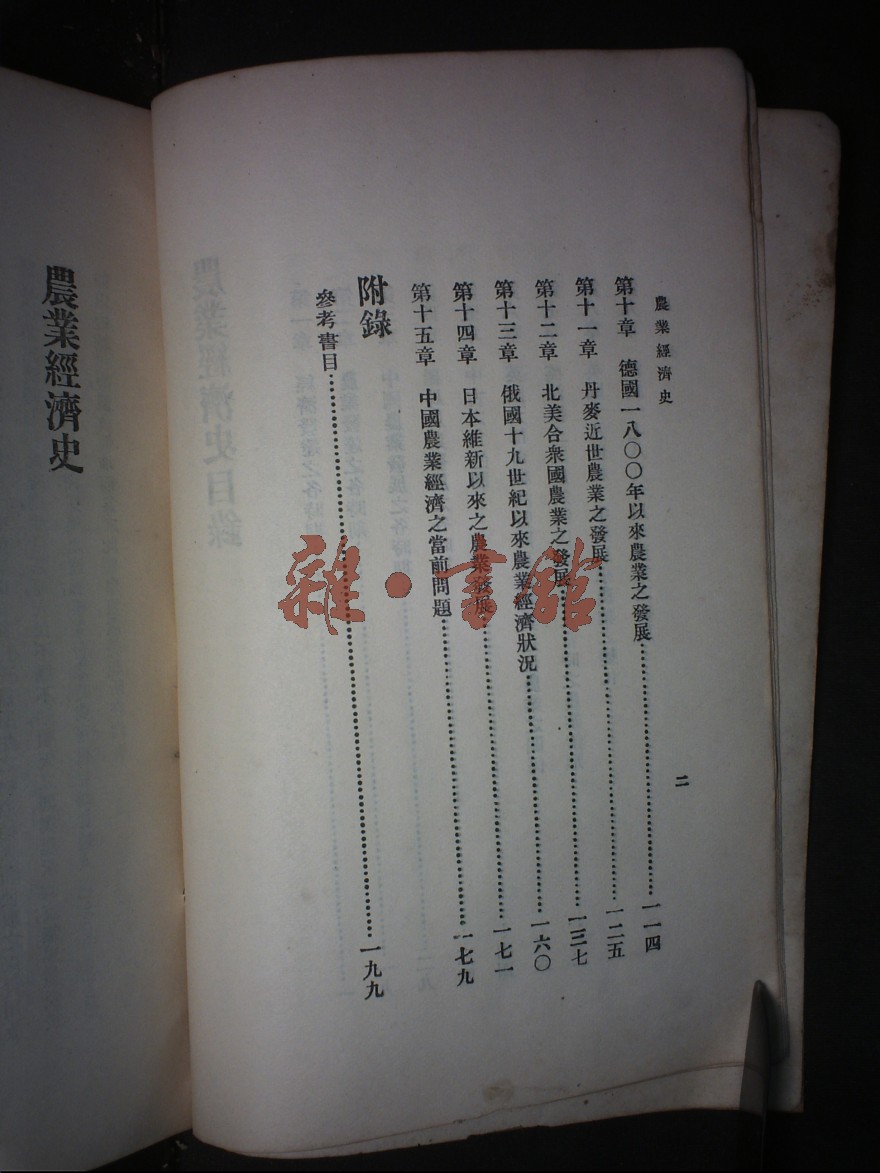 農業經濟史
二
第十章 德國一八〇〇年以來農業之發展……一一四
第十一章 丹麥近世農業之發展……一二五
第十二章 北美合衆國農業之發展……一三七
第十三章 俄國十九世紀以來農業經濟狀況……一六〇
第十四章 日本維新以來之農業發展……一七一
第十五章 中國農業經濟之當前問題……一七九
附錄
參考書目……一九九
農業經濟史
雜·書館